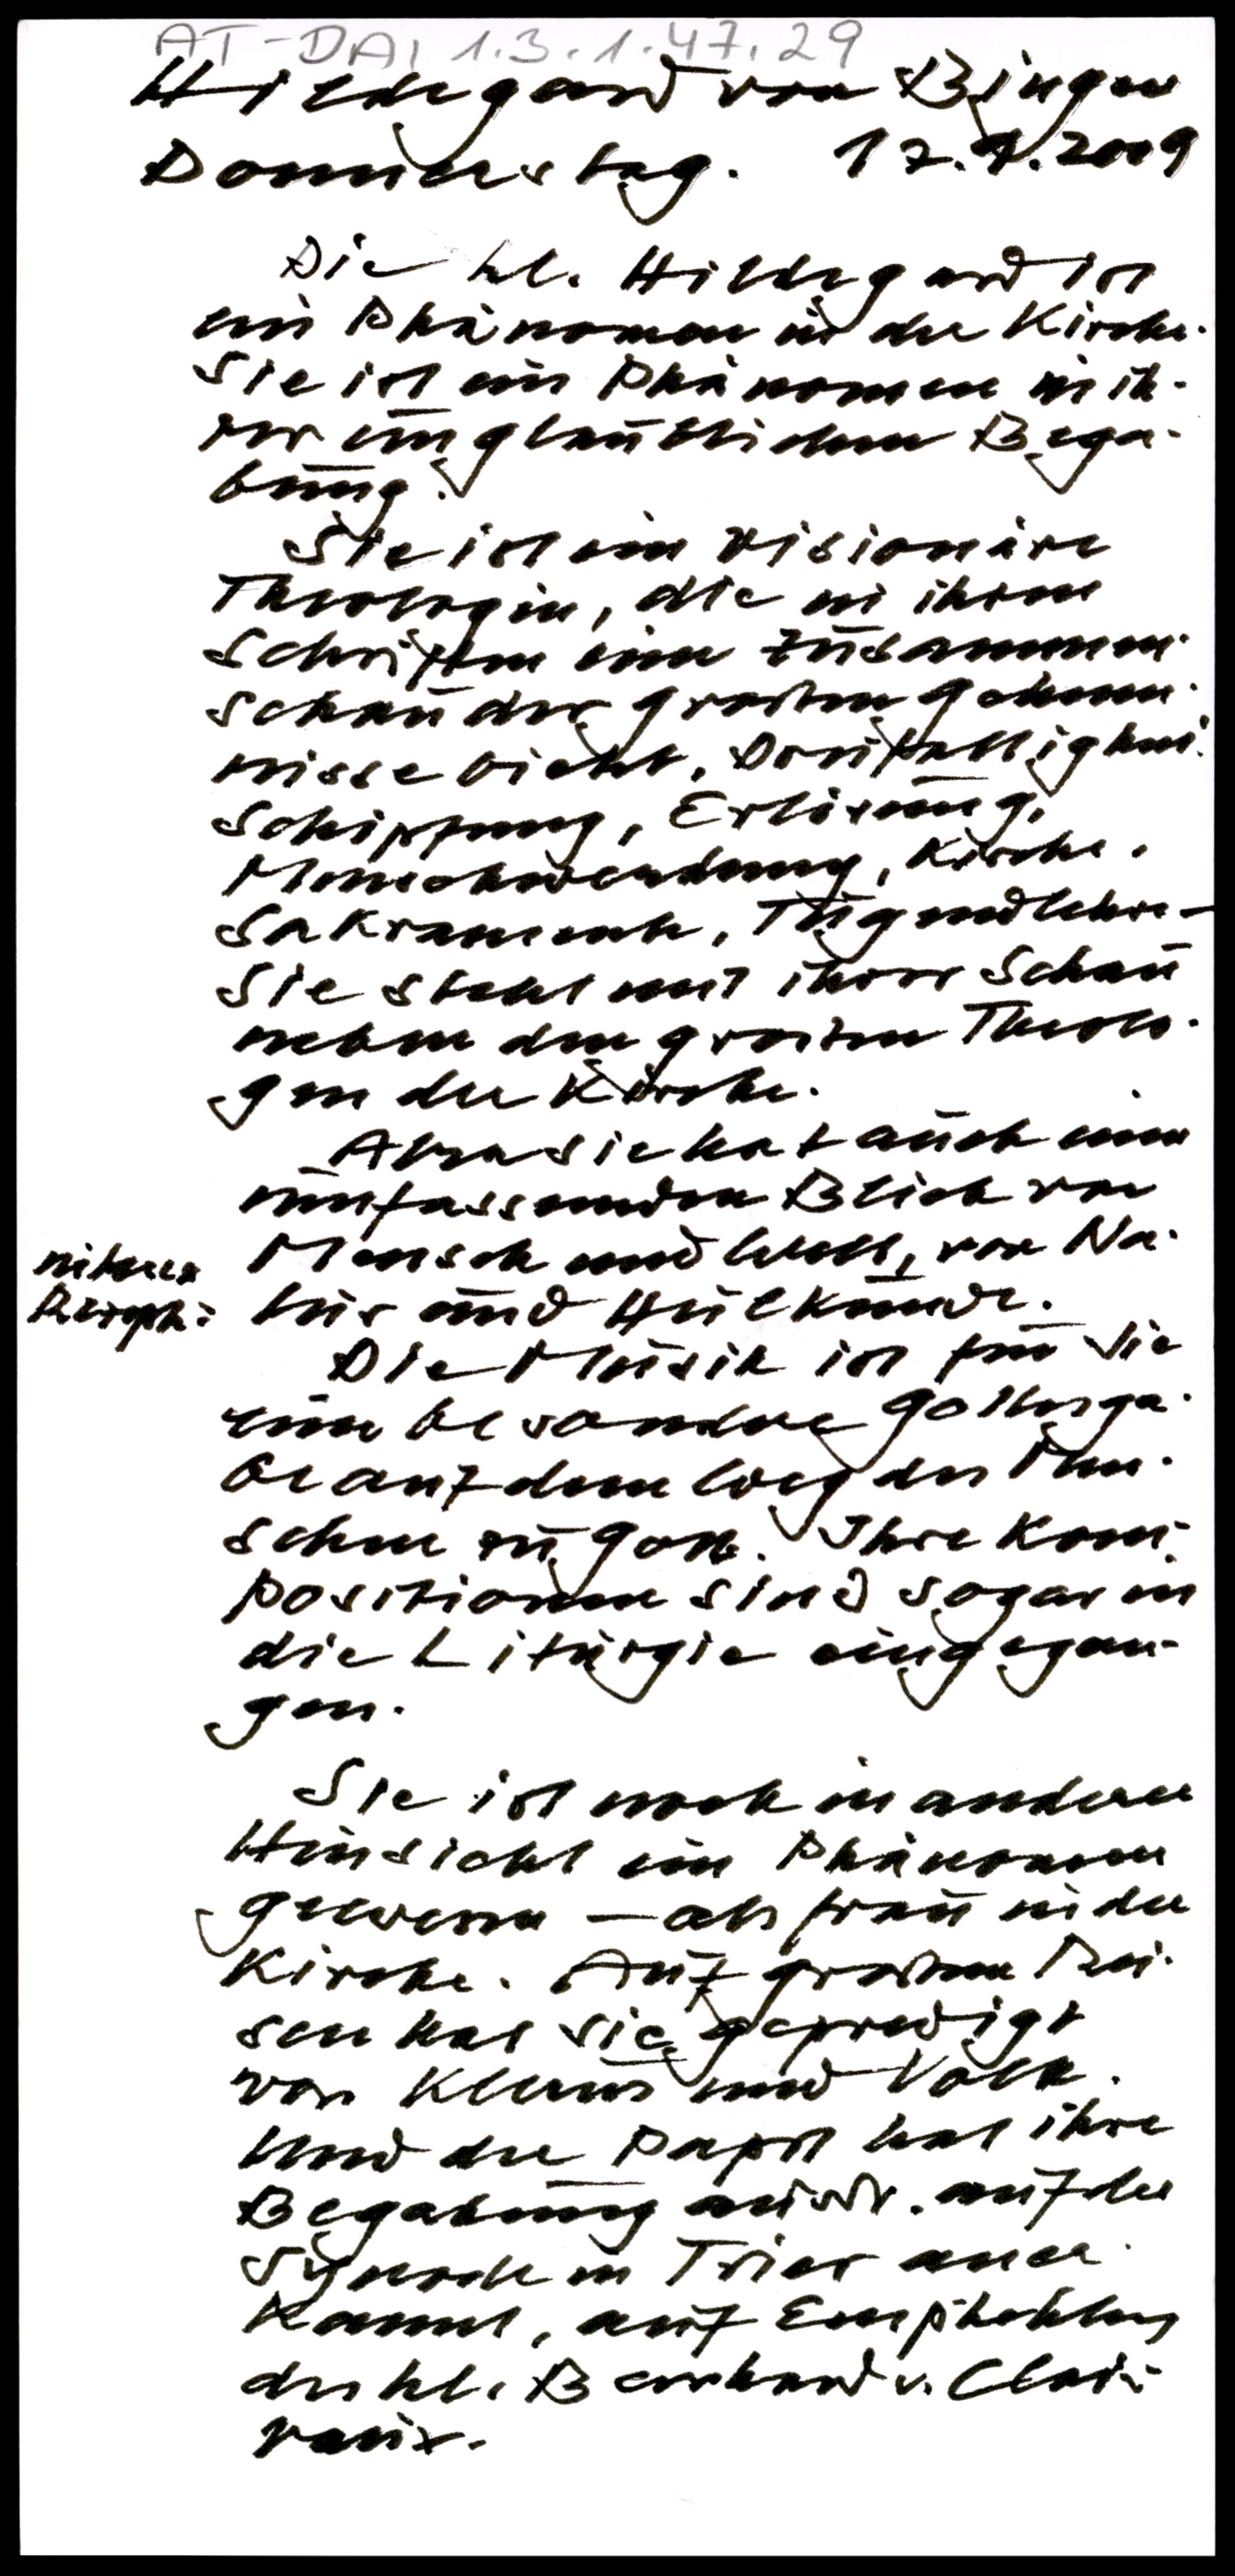 AT-DAI 1.3.1.47.29
Hildegard von Bingen
Donnerstag. 17.9.2009
Die hl. Hildegard ist
ein Phänomen in der Kirche.
Sie ist ein Phänomen in ih-
rer unglaublichen Bega-
bung.
Sie ist ein visionäre
Theologin, die in ihren
Schriften eine Zusammen-
schau der großen Geheim-
nisse bietet, Dreifaltigkeit
Schöpfung, Erlösung,
Menschwerdung, Kirche,
Sakramente, Tugendlehre –
Sie steht mit ihrer Schau
neben den großen Theolo-
gen der Kirche.
Aber sie hat auch einen
umfassenden Blick von
Mensch und Welt, von Na-
tur und Heilkunde.
Die Musik ist für sie
eine besondere Gottesga-
be auf dem Weg des Men-
schen zu Gott. Ihre Kom-
positionen sind sogar in
die Liturgie eingegan-
gen.
Sie ist noch in anderer
Hinsicht ein Phänomen
gewesen – als Frau in der
Kirche. Auf großen Rei-
sen hat sie gepredigt
vor Klerus und Volk.
Und der Papst hat ihre
Begabung auf der
Synode in Trier aner-
kannt, auf Empfehlung
des hl. Bernhard v. Clair-
vaux.